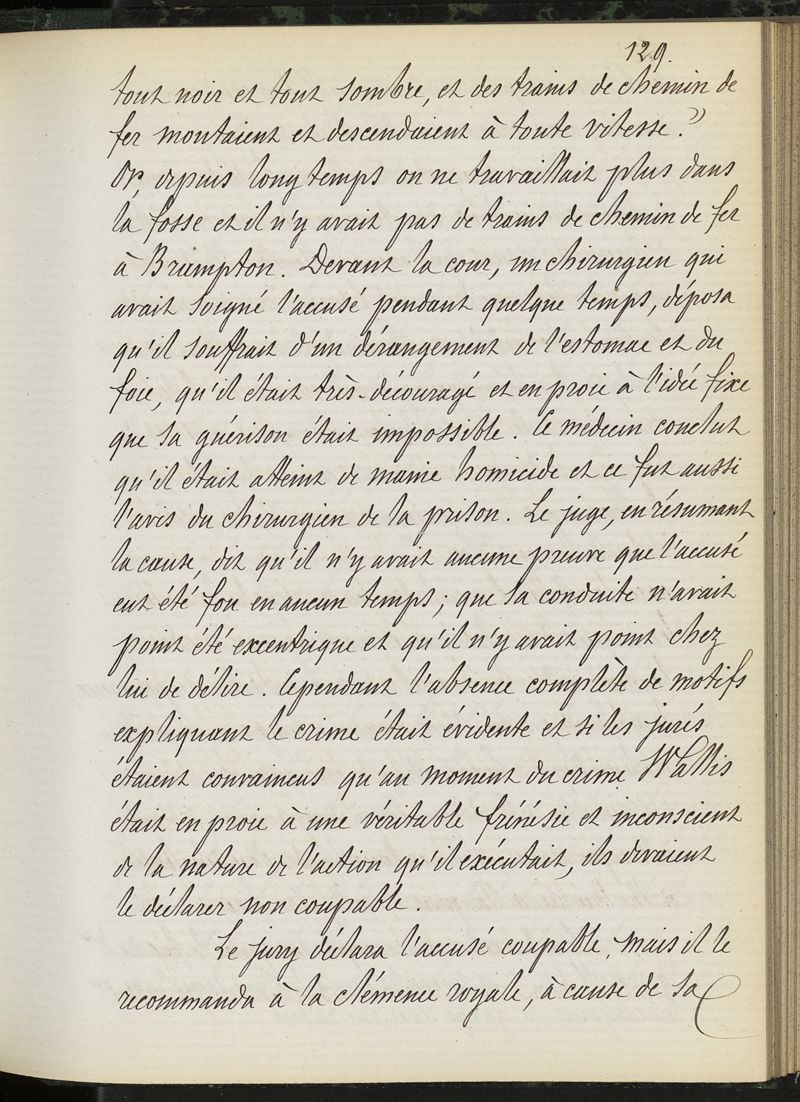 129.
tout noir et tout sombre, et des trains de chemin de
fer montaient et descendaient à toute vitesse. »
Or, depuis longtemps on ne travaillait plus dans
la fosse et il n'y avait pas de trains de chemin de fer
à Brumpton. Devant la cour, un chirurgien qui
avait soigné l'accusé pendant quelque temps, déposa
qu'il souffrait d'un dérangement de l'estomac et du
foie, qu'il était très-découragé et en proie à l'idée fixe
que sa guérison était impossible. Ce médecin conclut
qu'il était atteint de manie homicide et ce fut aussi
l'avis du chirurgien de la prison. Le juge, en résumant
la cause, dit qu'il n'y avait aucune preuve que l'accusé
eut été fou en aucun temps; que sa conduite n'avait
point été excentrique et qu'il n'y avait point chez
lui de délire. Cependant l'absence complète de motifs
expliquant le crime était évidente et si les jurés
étaient convaincus qu'au moment du crime Wallis
était en proie à une véritable frénésie et inconscient
de la nature de l'action qu'il exécutait, ils devaient
le déclarer non coupable.
Le jury déclara l'accusé coupable, mais il le
recommanda à la clémence royale, à cause de sa